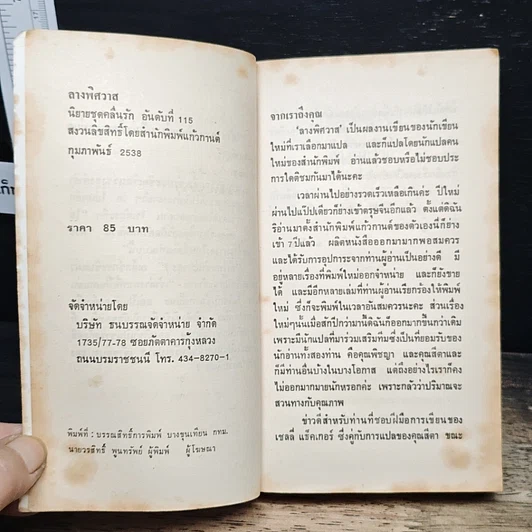 ลางพิศวาส
นิยายชุดคลื่นรัก อันดับที่ 115
สงวนลิขสิทธิ์โดยสำนักพิมพ์แก้วกานต์
กุมภาพันธ์ 2538
ราคา 85 บาท
จัดจำหน่ายโดย
บริษัท ธนบรรณจัดจำหน่าย จำกัด
1735/77-78 ซอยภัตตาคารกุ้งหลวง
ถนนบรมราชชนนี โทร. 434-8270-1
พิมพ์ที่ : บรรณสิทธิ์การพิมพ์ บางขุนเทียน กทม.
นายวรสิทธิ์ พูนทรัพย์ ผู้พิมพ์ ผู้โฆษณา
จากเราถึงคุณ
'ลางพิศวาส' เป็นผลงานเขียนของนักเขียน
ใหม่ที่เราเลือกมาแปล และก็แปลโดยนักแปลคน
ใหม่ของสำนักพิมพ์ อ่านแล้วชอบหรือไม่ชอบประ
การใดติชมกันมาได้นะคะ
เวลาผ่านไปอย่างรวดเร็วเหลือเกินค่ะ ปีใหม่
ผ่านไปแป๊ปเดียวก็ย่างเข้าตรุษจีนอีกแล้ว ตั้งแต่ดิฉัน
ริอ่านมาตั้งสำนักพิมพ์แก้วกานต์ของตัวเองนี่ก็ย่าง
เข้า 7 ปีแล้ว ผลิตหนังสือออกมามากพอสมควร
และได้รับการอุปการะจากท่านผู้อ่านเป็นอย่างดี มี
อยู่หลายเรื่องที่พิมพ์ใหม่ออกจำหน่าย และก็ยังขาย
ได้ และมีอีกหลายเล่มที่ท่านผู้อ่านเรียกร้องให้พิมพ์
ใหม่ ซึ่งก็จะพิมพ์ในเวลาอันสมควรนะคะ ส่วนเรื่อง
ใหม่ๆนั้นเมื่อสักปีกว่ามานี้ดิฉันก็ออกมากขึ้นกว่าเดิม
เพราะมีนักแปลที่มาร่วมเสริมทีม ซึ่งเป็นที่ยอมรับของ
นักอ่านทั้งสองท่าน คือคุณพิชญา และคุณสีตาและ
ก็มีท่านอื่นบ้างในบางโอกาส แต่ถึงอย่างไรเราก็คง
ไม่ออกมากมายนักหรอกค่ะ เพราะกลัวว่าปริมาณจะ
สวนทางกับคุณภาพ
ข่าวดีสำหรับท่านที่ชอบฝีมือการเขียนของ
เชลลี่ แธ็คเกอร์ ซึ่งคู่กับการแปลของคุณสีตา ขณะ